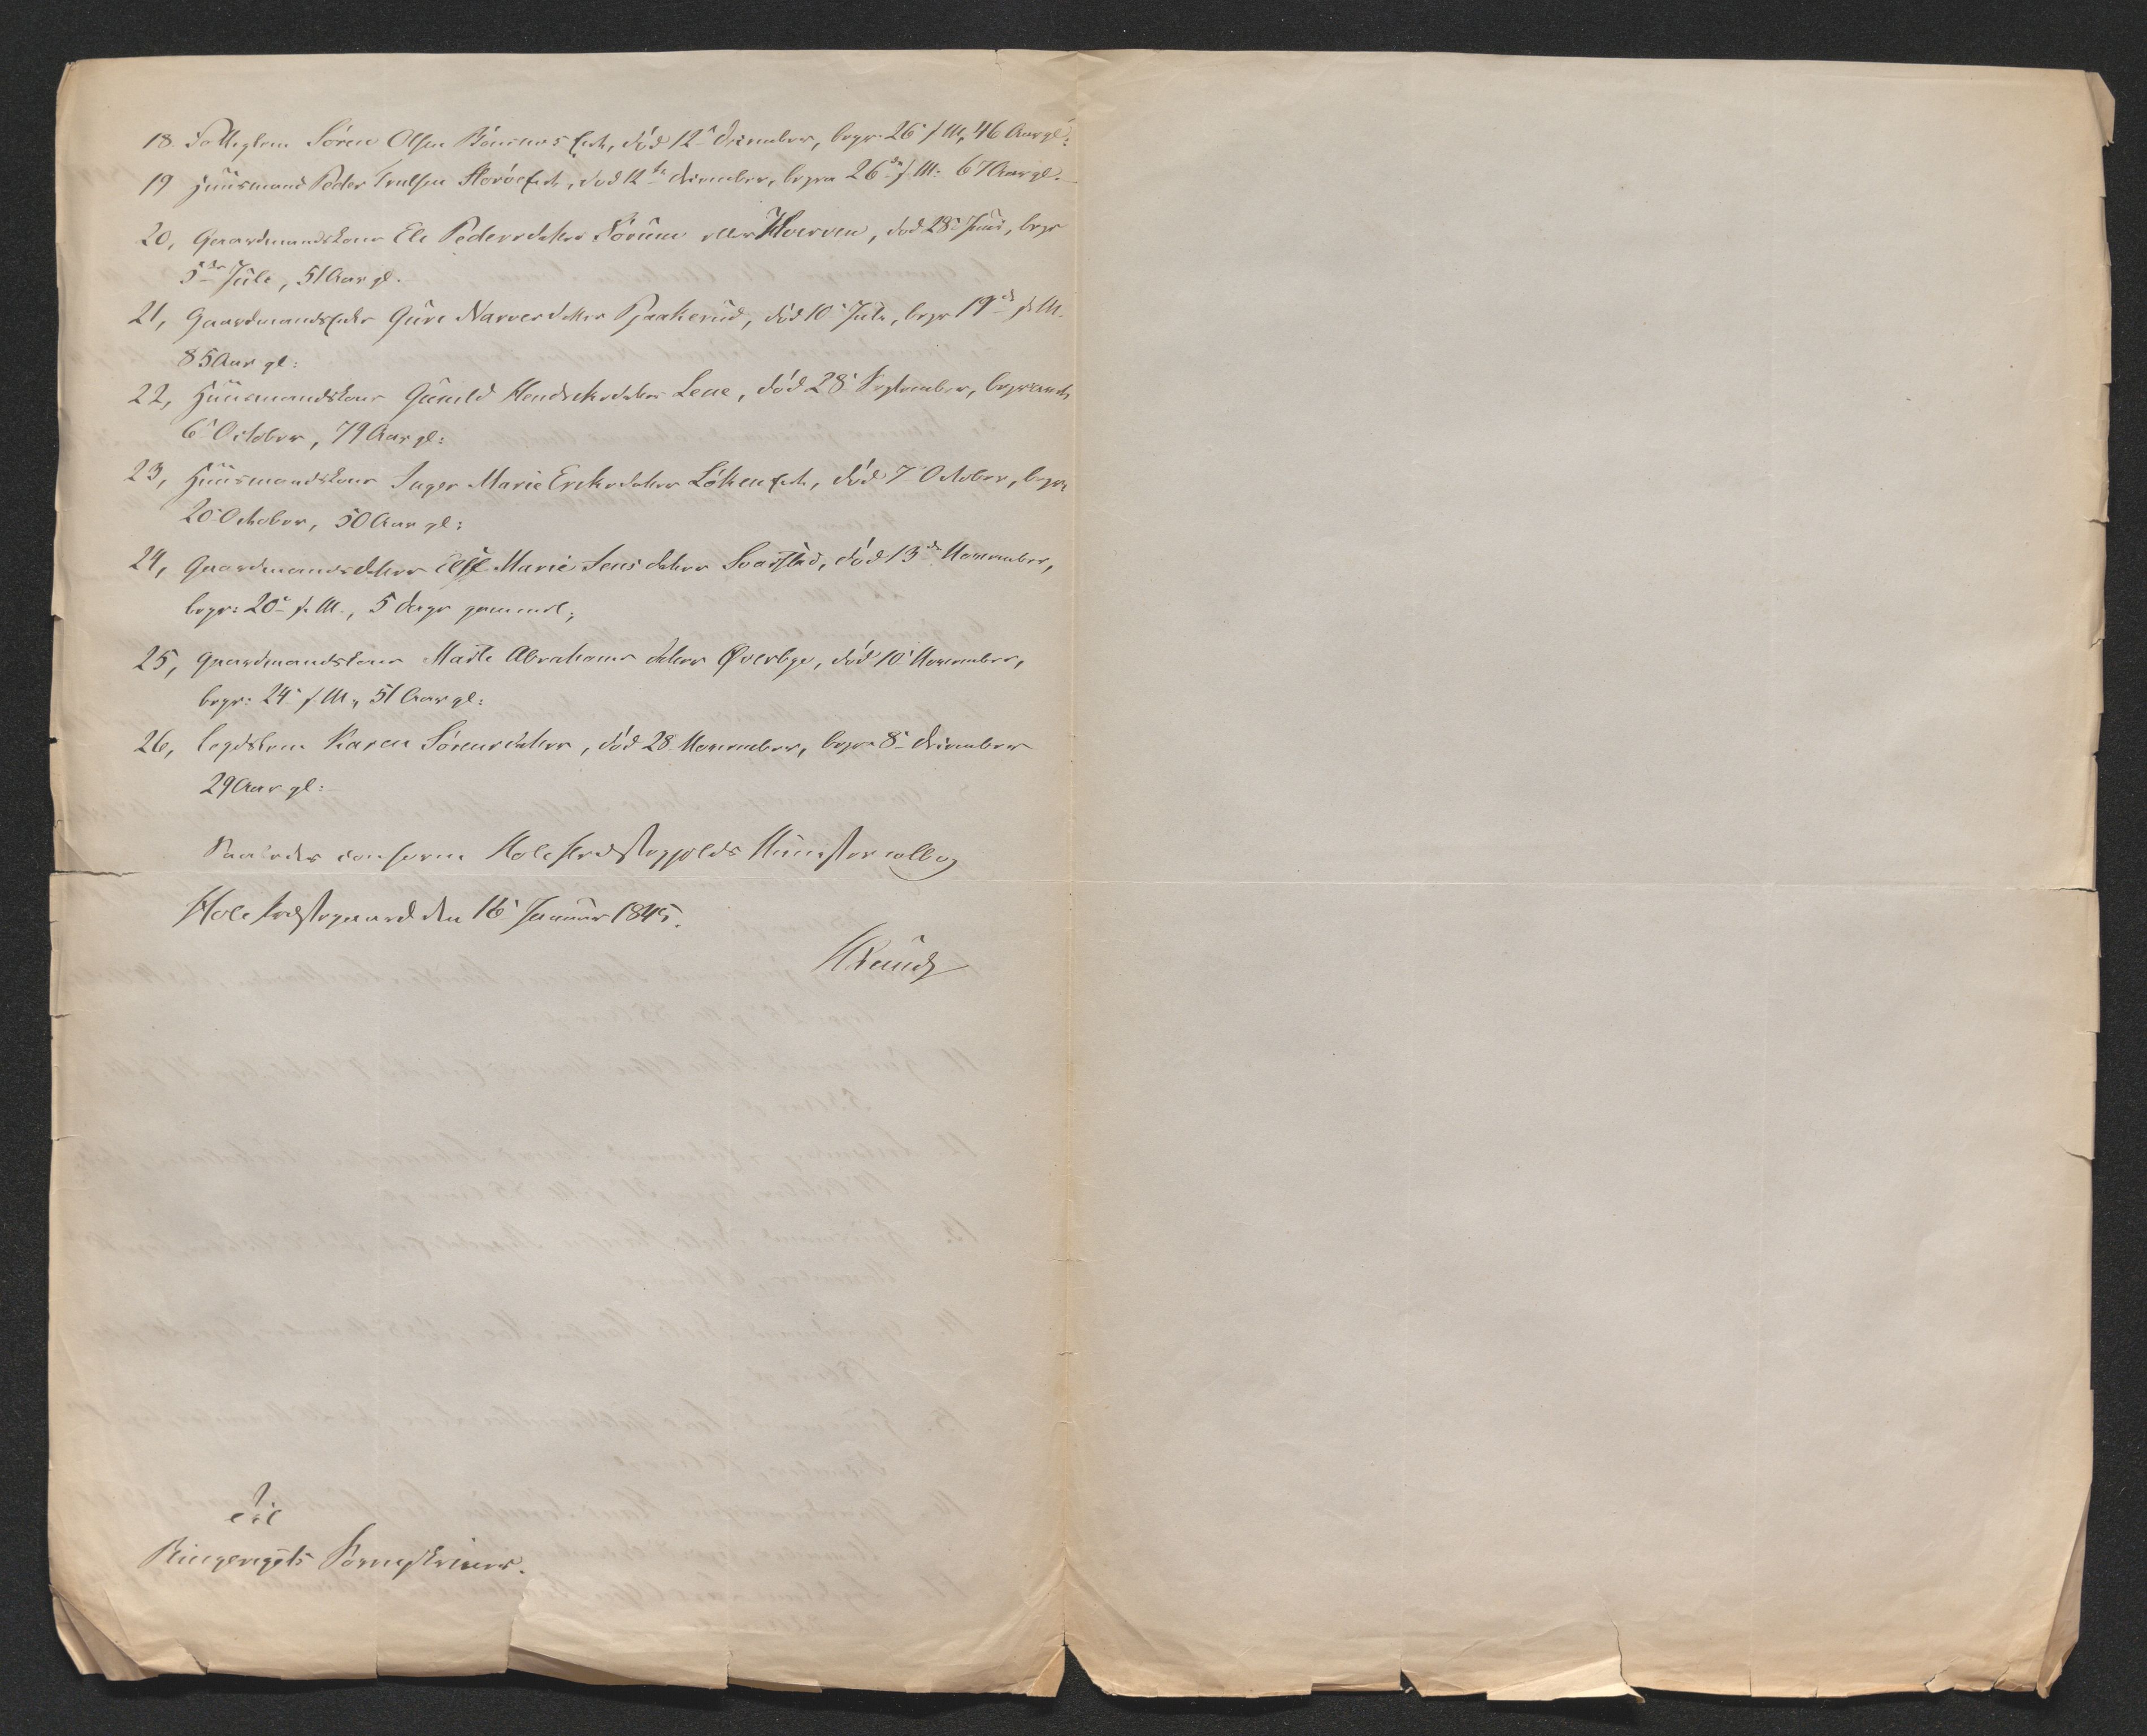 18. Søren Olsen Bønsnes Eiet, død 12te December, begr. 26 s. M., 46 Aar gl:
19 Huusmand Peder Trulsen Storøe Eiet, død 12te December, begra 26de s. M: 67 Aar gl.
20, Gaardmandskone Eli Pedersdatter Sørum eller Hverven, død 28 Juni, begr
5te Juli, 51 Aar gl.
21, Gaardmandsenke Guro Narvesdatter Pjaakerud, død 10 Juli, begr 19de s. M.
85 Aar gl:
22, Huusmandskone Gunild Hendriksdatter Lene, død 28 September, begravet
6 October, 79 Aar gl:
23, Huusmandskone Inger Marie Eriksdatter Løken Eiet, død 7 October, begra
20 October, 50 Aar gl:
24, Gaardmandsdatter Else Marie Jensdatter Svarstad, død 13de November,
begr: 20 s. M., 5 dage gammel;
25, Gaardmandskone Marte Abrahamsdatter Øverbye, død 10 November,
begr: 24 s. M., 51 Aar gl:
26, Legdslem Karen Sørensdatter, død 28 November, begr 8 December
29 Aar gl:
Saaledes conform Hole Præstegjelds Ministerialbog
Hole Præstegaard den 16 Januar 1845.
Til
Ringerigets Sorenskriver.